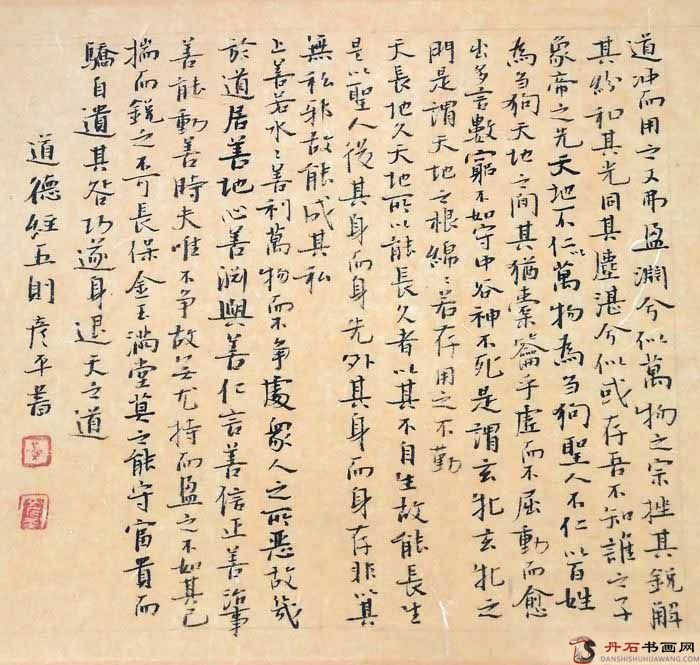 道沖而用之又弗盈淵兮似萬物之宗挫其銳解
其紛和其光同其塵湛兮似或存吾不知誰之子
象帝之先天地不仁以萬物為芻狗聖人不仁以百姓
為芻狗天地之間其猶橐籥乎虛而不屈動而愈
出多言數窮不如守中谷神不死是謂玄牝玄牝之
門是謂天地之根綿〻若存用之不勤
天長地久天地所以能長久者以其不自生故能長生
是以聖人後其身而身先外其身而身存非以其
無私邪故能成其私
上善若水〻善利萬物而不争處眾人之所惡故幾
於道居善地心善淵與善仁言善信正善治事
善能動善時夫唯不争故無尤持而盈之不如其已
揣而銳之不可長保金玉滿堂莫之能守富貴而
驕自遺其咎功遂身退天之道
道德經五則彥平書
丹石书画网
DANSHISHUHUAWANG.COM